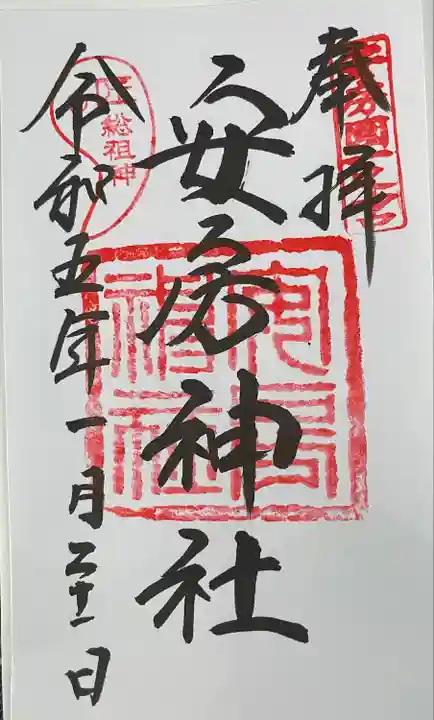 奉拝
安房國一之宮
安房神社
安房神社
日本産業総祖神
令和五年一月二十一日